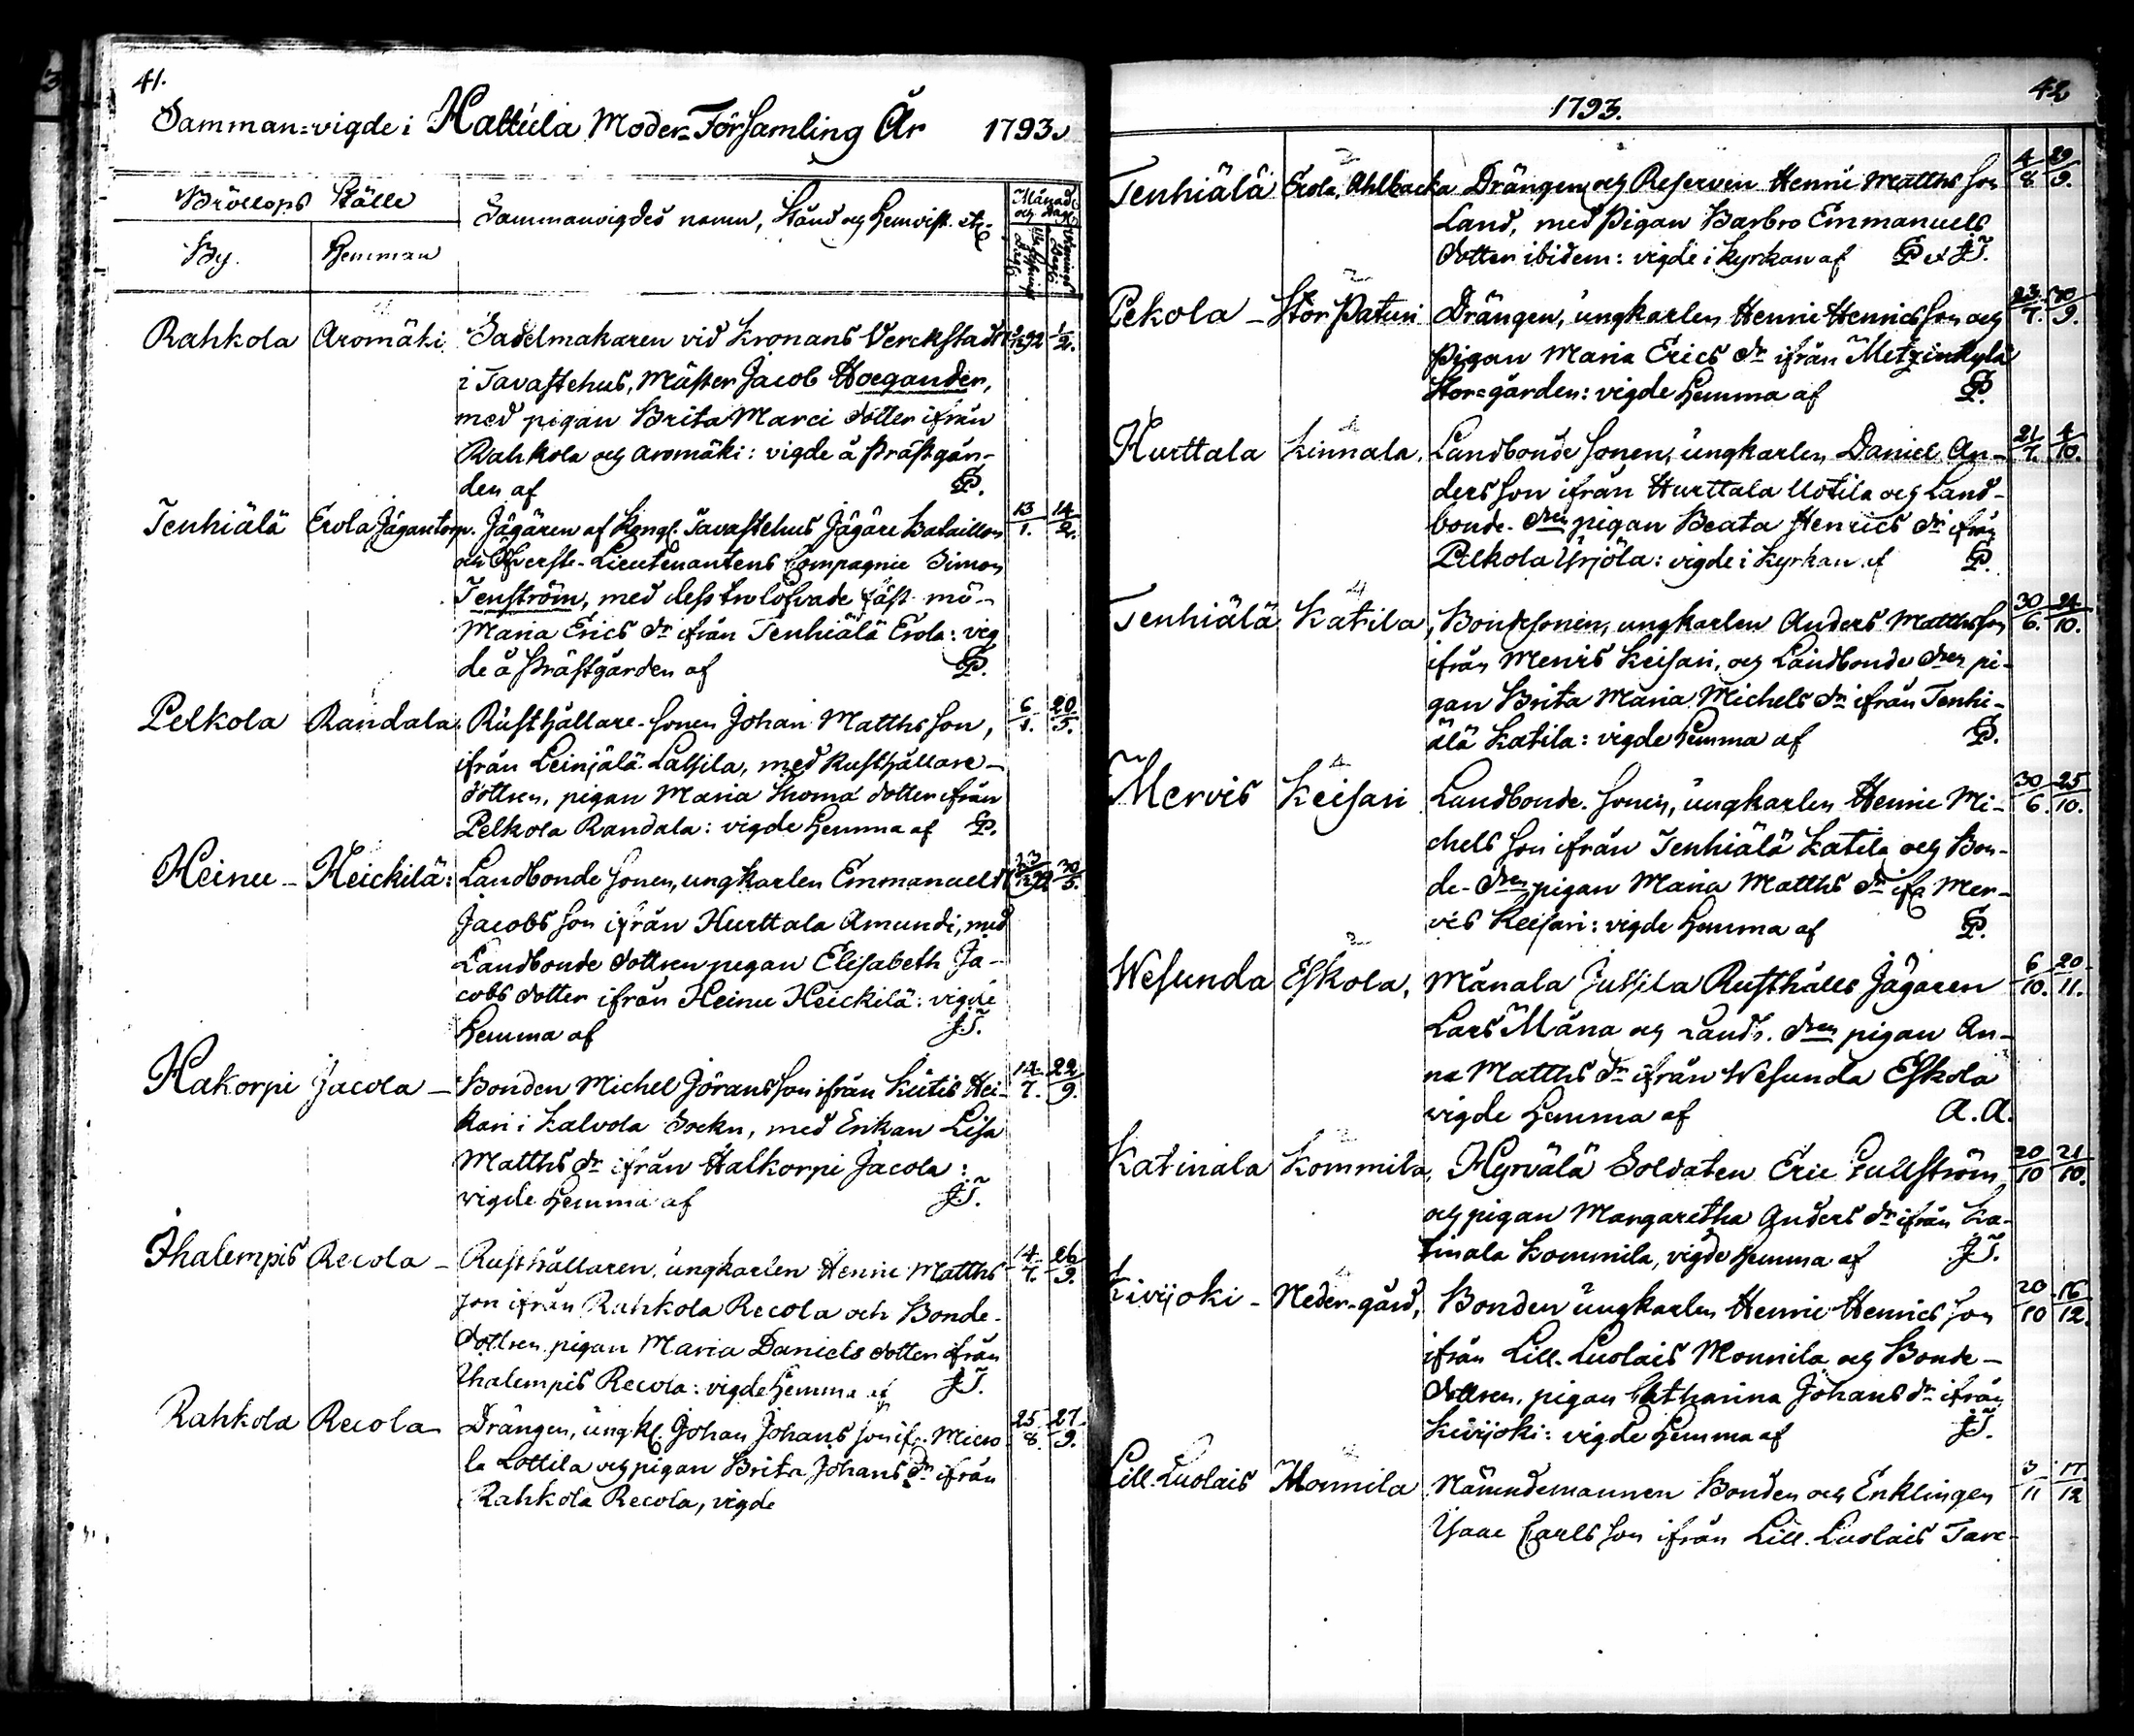 41.
Samman=vigde i Hattula Moder=Församling År 1793.
Bröllops Ställe
Sammanvigdes namn, Stånd och Hemvist. etc.
Månad och Dag
By. Hemman
Lysnings Dag Vignings Dag
Rahkola Aromäki. Sadelmakaren vid Kronans Verckstad 1/2.
i Tavastehus, Mäster Jacob Hoegander,
med pigan Brita Marci dotter ifrån
Rahkola och Aromäki: vigde å Prästgår-
den af GP.
Tenhiälä Erola Jägaretorp. Jägaren af Kongl. Tavastehus Jägare Bataillon 13/1. 14/2.
och Öfverste-Lieutenantens Compagnie Simon
Tenström, med dess trolofvade fäst mö-
Maria Erics dr ifrån Tenhiälä Erola: vig
de å Prästgården af GP.
Pelkola Randala. Rusthållare-Sonen Johan Matths son, 6/1. 20/5.
ifrån Leinjälä Lassila, med Rusthållare-
dottren, pigan Maria Thomæ dotter ifrån
Pelkola Randala: vigde hemma af GP.
Heinu - Heickilä: Landbonde Sonen, ungkarlen Emmanuel 30/5.
Jacobs son ifrån Hurttala Amundi, med
Landbonde dottren pigan Elisabeth Ja-
cobs dotter ifrån Heinu Heickilä: vigde
hemma af JT.
Hakorpi Jacola - Bonden Michel Jörans son ifrån Kutis Hei- 14/7. 22/9.
kari i Kalvola Sockn, med Enkan Lisa
Matths dr ifrån Halkorpi Jacola:
vigde hemma af JT.
Ihalempis Recola - Rusthållaren, ungkarlen Henric Matths 14/7. 26/9.
son ifrån Rahkola Recola och Bonde-
dottren pigan Maria Daniels dotter ifrån
Ihalempis Recola: vigde hemma af JT.
Rahkola Recola Drängen, ungk. Johan Johans son if. Micko 25/8. 27/9.
la Lottila och pigan Brita Johans dr ifrån
Rahkola Recola, vigde
42
1793.
Tenhiälä Erola, Ahlbacka Drängen och Reserven Henric Matths son 4/8 29/9.
Land, med Pigan Barbro Emmanuels
dotter ibidem: vigde i Kyrkan af GP et JT.
Pekola - Stor Paturi Drängen, ungkarlen Henric Henrics son och 23/7. 30/9.
Pigan Maria Erics dr ifrån Metzinkylä
Stor=gården: vigde hemma af GP.
Hurttala Kinnala. Landbonde sonen, ungkarlen Daniel An- 21/7. 4/10.
ders son ifrån Hurttala Uotila och Land-
bonde-dren pigan Beata Henrics dr ifrån
Pelkola Yrjölä: vigde i Kyrkan af GP.
Tenhiälä Katila, Bondesonen, ungkarlen Anders Matths son 30/6. 24/10.
ifrån Mervis Keisari, och Landbonde dren pi-
gan Brita Maria Michels dr ifrån Tenhi-
älä Katila: vigde hemma af GP.
Mervis Keisari Landbonde-sonen, ungkarlen Henric Mi- 30/6. 25/10.
chels son ifrån Tenhiälä Katila och Bon-
de-dren pigan Maria Matths dr ifr. Mer-
vis Keisari: vigde hemma af GP.
Wesunda Eskola, Månala Jussila Rusthålls Jägaren 6/10. 20/11.
Lars Måna och Landb. dren pigan An-
na Matths dr ifrån Wesunda Eskola
vigde hemma af A.A.
Katinala Kommila, Hyrvälä Soldaten Eric Gullström, 20/10 21/10.
och pigan Margaretha Anders dr ifrån Ka-
tinala Kommila, vigde hemma af JT.
Kivijoki - Neder-gård, Bonden ungkarlen Henric Henrics son 20/10 16/12.
ifrån Lill-Luolais Monnila och Bonde-
dottren, pigan Catharina Johans dr ifrån
Kivijoki: vigde hemma af JT.
Lill-Luolais Monnila Nämndemannen Bonden och Enklingen 3/11 17/12
Isaac Carls son ifrån Lill-Luolais Tave-